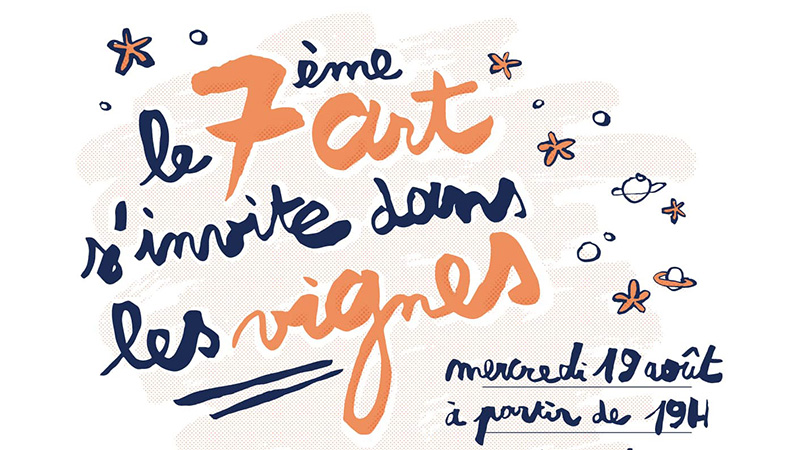 le 7ème art
s'invite dans
les vignes
mercredi 19 août
à partir de 19H